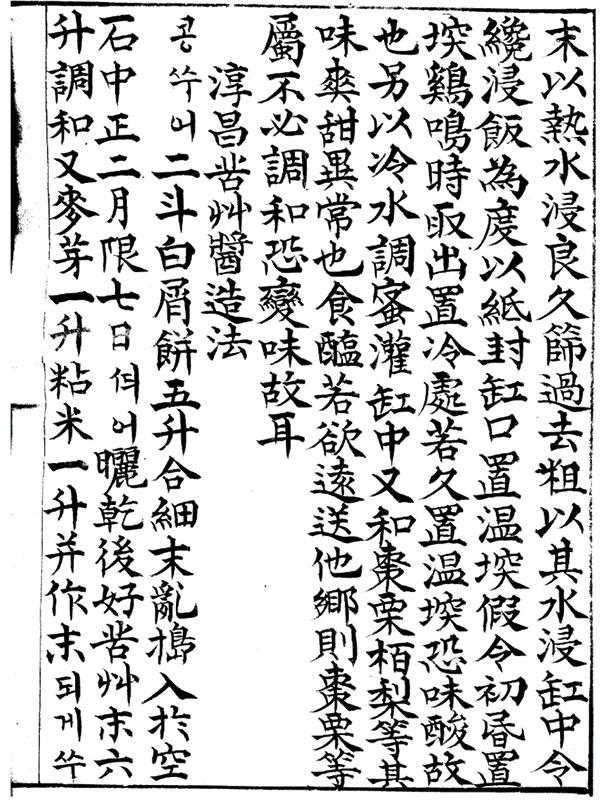 末以熱水浸良久篩過去粗以其水浸缸中令
纔浸飯為度以紙封缸口置温堗假令初昏置
堗鷄鳴時取出置冷處若久置温堗恐味酸故
也另以冷水調蜜灌缸中又和棗栗栢梨等其
味爽甜異常也食醢若欲遠送他鄉則棗栗等
屬不必調和恐變味故耳
淳昌苦艸醬造法
콩쑤어二斗白屑餠五升合細末亂搗入於空
石中正二月限七日띄어曬乾後好苦艸末六
升調和又麥芽一升粘米一升并作末되게쑤